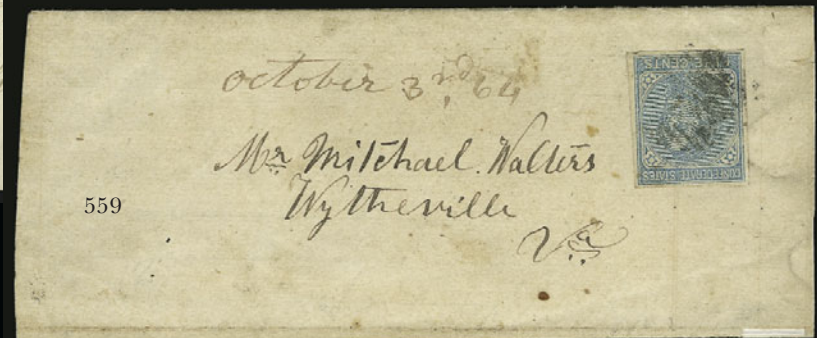 October 3rd, 64
Mr Mitchael. Walters
Wytheville
Va
559
CENTS
CONFEDERATE STATES